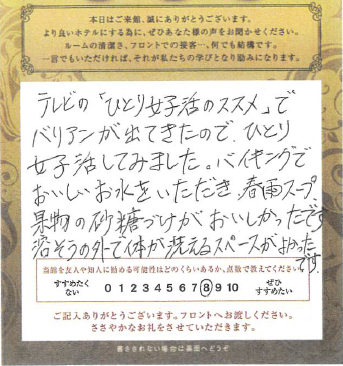 本日はご来館、誠にありがとうございます。
より良いホテルにする為に、ぜひあなた様の声をお聞かせください。
ルームの清潔さ、フロントでの接客…、何でも結構です。
一言でもいただければ、それが私たちの学びとなり励みになります。
テレビの「ひとり女子活のススメ」で
バリアンが出てきたので、ひとり
女子活してみました。バイキングで
おいしいお水をいただき、春雨スープ、
果物の砂糖づけがおいしかったです
浴そうの外で体が洗えるスペースがよかった
です。
当館を友人や知人に勧める可能性はどのくらいあるか、点数で教えてください
すすめたくない 0 1 2 3 4 5 6 7 8 9 10 ぜひすすめたい
ご記入ありがとうございます。フロントへお渡しください。
ささやかなお礼をさせていただきます。
書ききれない場合は裏面へどうぞ